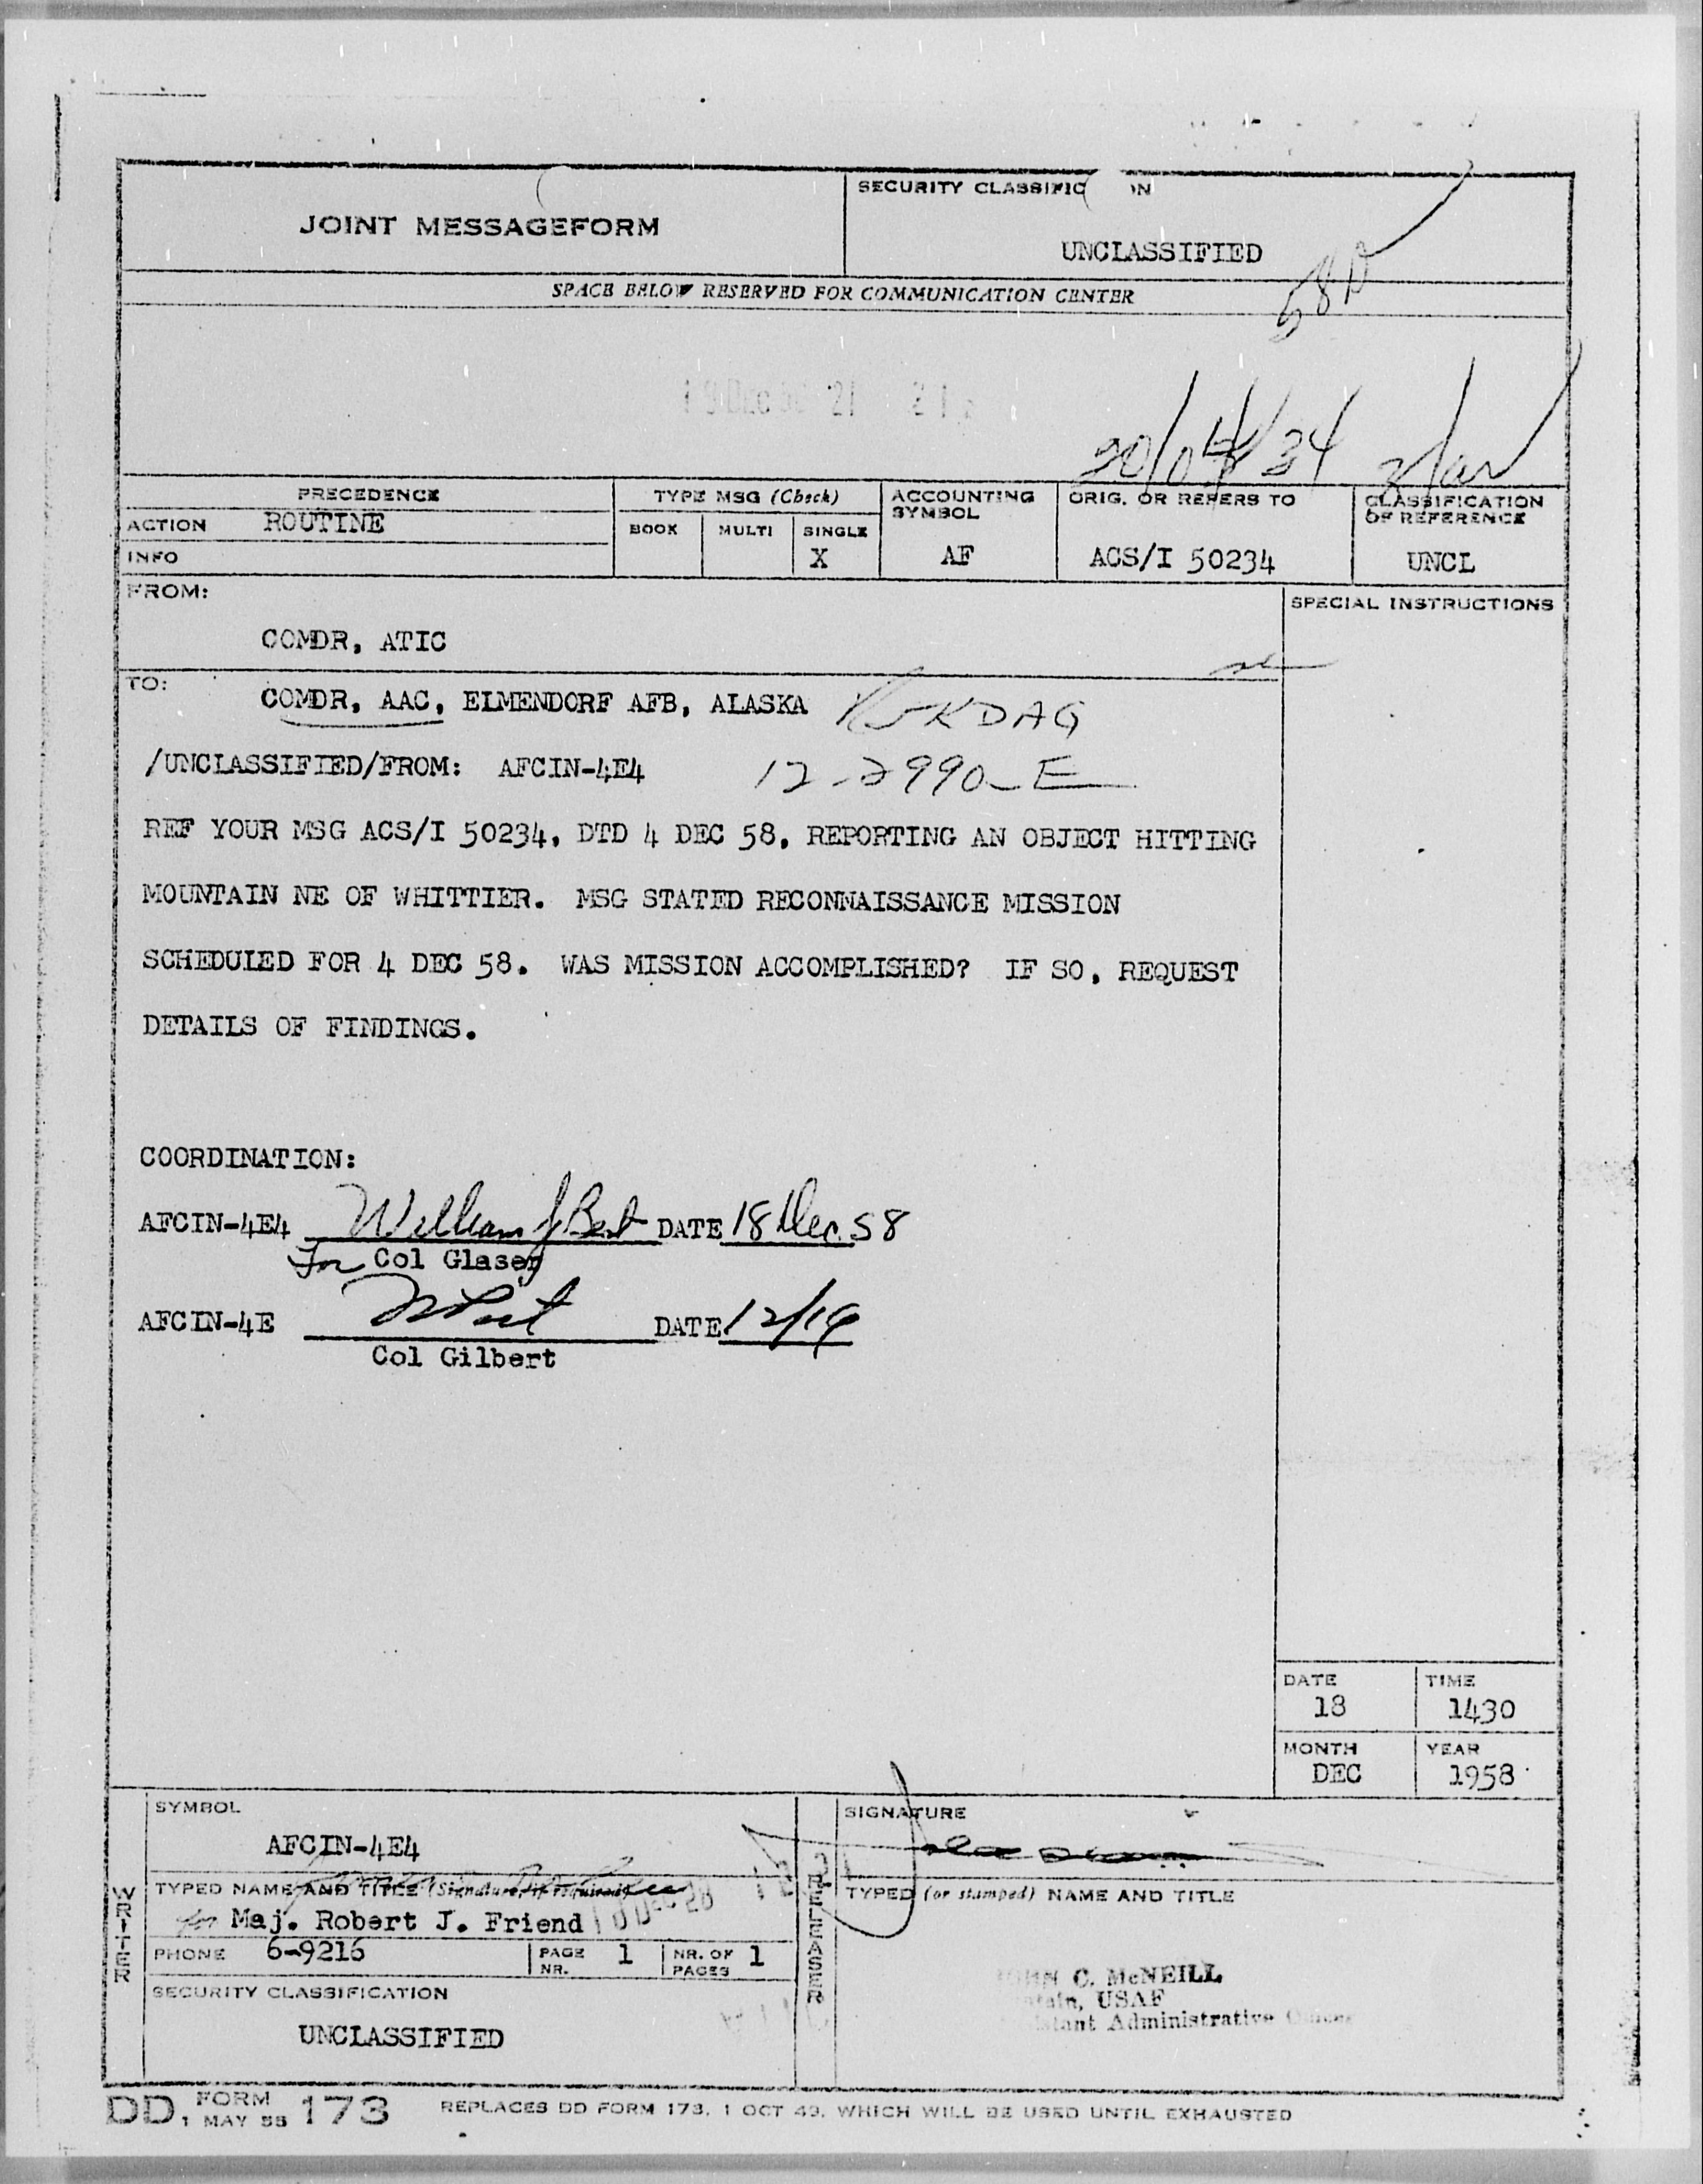 JOINT MESSAGEFORM
SECURITY CLASSIFIC N
UNCLASSIFIED
SPACE BELOW RESERVED FOR COMMUNICATION CENTER
PRECEDENCE
ACTION ROUTINE
INFO
TYPE MSG (Check)
BOOK MULTI SINGLE
X
ACCOUNTING SYMBOL
AF
ORIG. OR REFERS TO
ACS/I 50234
CLASSIFICATION OF REFERENCE
UNCL
FROM:
COMDR, ATIC
SPECIAL INSTRUCTIONS
TO:
COMDR, AAC, ELMENDORF AFB, ALASKA
/UNCLASSIFIED/FROM: AFCIN-4E4 12-2990-E
REF YOUR MSG ACS/I 50234, DTD 4 DEC 58, REPORTING AN OBJECT HITTING
MOUNTAIN NE OF WHITTIER. MSG STATED RECONNAISSANCE MISSION
SCHEDULED FOR 4 DEC 58. WAS MISSION ACCOMPLISHED? IF SO, REQUEST
DETAILS OF FINDINGS.
COORDINATION:
AFCIN-4E4 William J Best DATE 18 Dec 58
For Col Glaser
AFCIN-4E DATE 12/19
Col Gilbert
DATE 18
TIME 1430
MONTH DEC
YEAR 1958
WRITER
SYMBOL
AFCIN-4E4
TYPED NAME AND TITLE (Signature, if required)
for Maj. Robert J. Friend
PHONE 6-9216
PAGE NR. 1
NR. OF PAGES 1
SECURITY CLASSIFICATION
UNCLASSIFIED
RELEASER
SIGNATURE
TYPED (or stamped) NAME AND TITLE
C. McNEILL
USAF
Administrative
DD FORM 1 MAY 55 173
REPLACES DD FORM 173, 1 OCT 49, WHICH WILL BE USED UNTIL EXHAUSTED